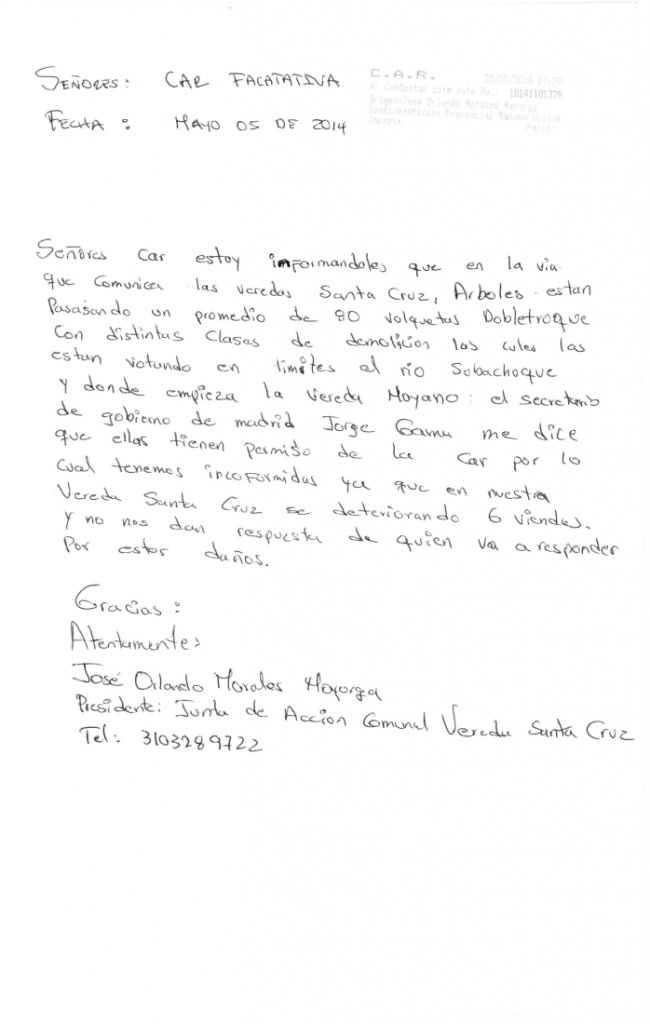 SEÑORES: CAR FACATATIVA
C.A.R.
05/05/2014 17:20
Al Contestar cite este No.: 10141101379
Origen:Jose Orlando Morales Mayorga
Destino:Oficina Provincial Sabana Occide
Anexos: Fol:1
FECHA: MAYO 05 DE 2014
Señores Car estoy imformandoles que en la via
que comunica las veredas Santa Cruz, Arboles estan
Pasasando un promedio de 80 volquetas Dobletroque
Con distintas Clases de demolicion las cules las
estan votando en limites al rio Subachoque
y donde empieza la Vereda Moyano: el secretario
de gobierno de madrid Jorge me dice
que ellos tienen permiso de la Car por lo
cual tenemos incoformidas ya que en nuestra
Vereda Santa Cruz se deteriorando 6 viendas.
Y no nos dan respuesta de quien va a responder
Por estos daños.
Gracias:
Atentamente:
José Orlando Morales Mayorga
Presidente: Junta de Accion Comunal Vereda Santa Cruz
Tel: 3103289722